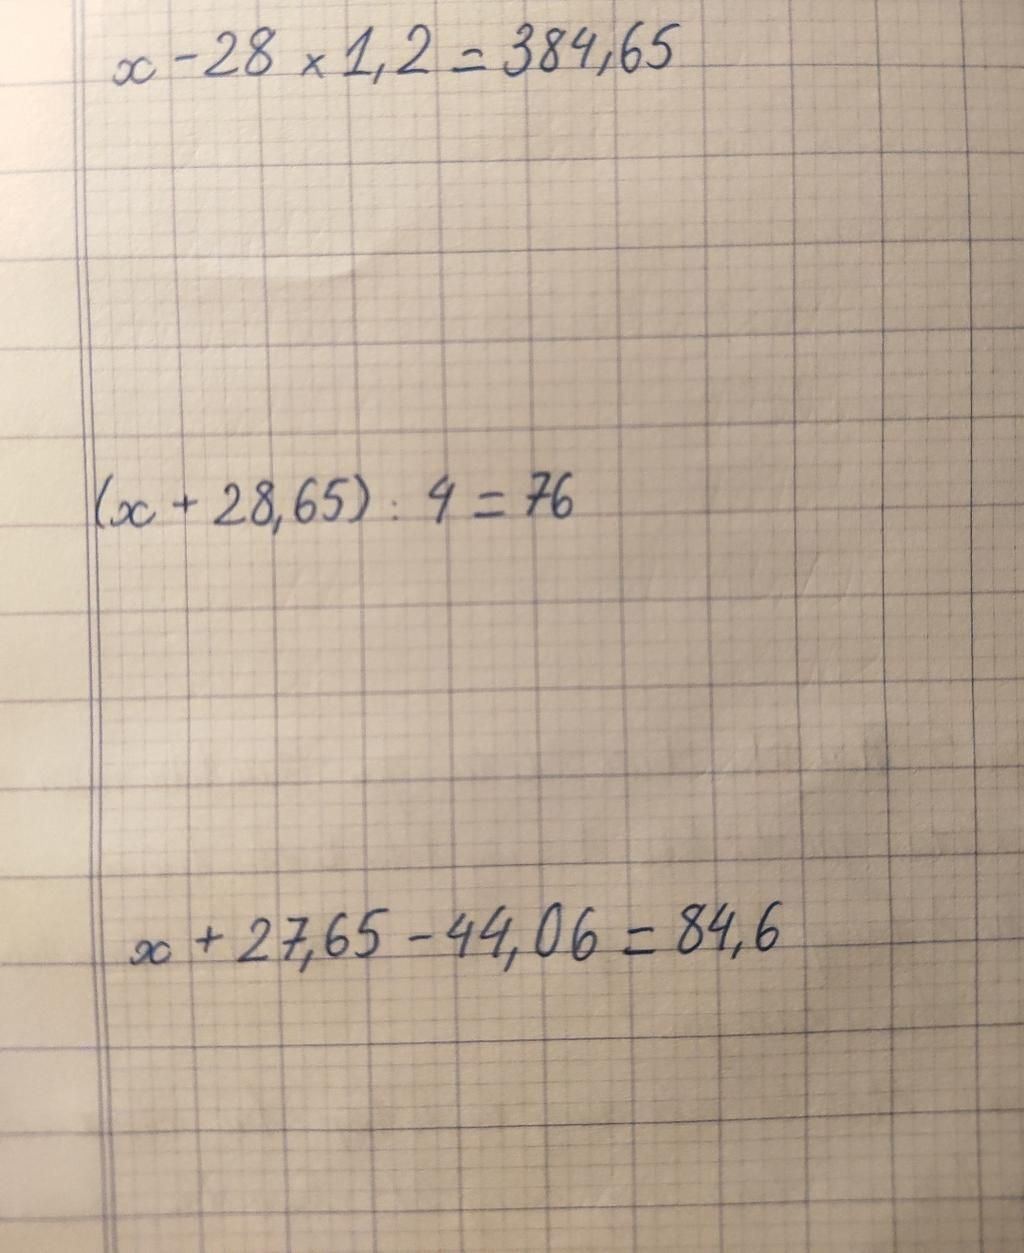 x - 28 × 1,2 = 384,65
(x + 28,65) : 4 = 76
x + 27,65 - 44,06 = 84,6